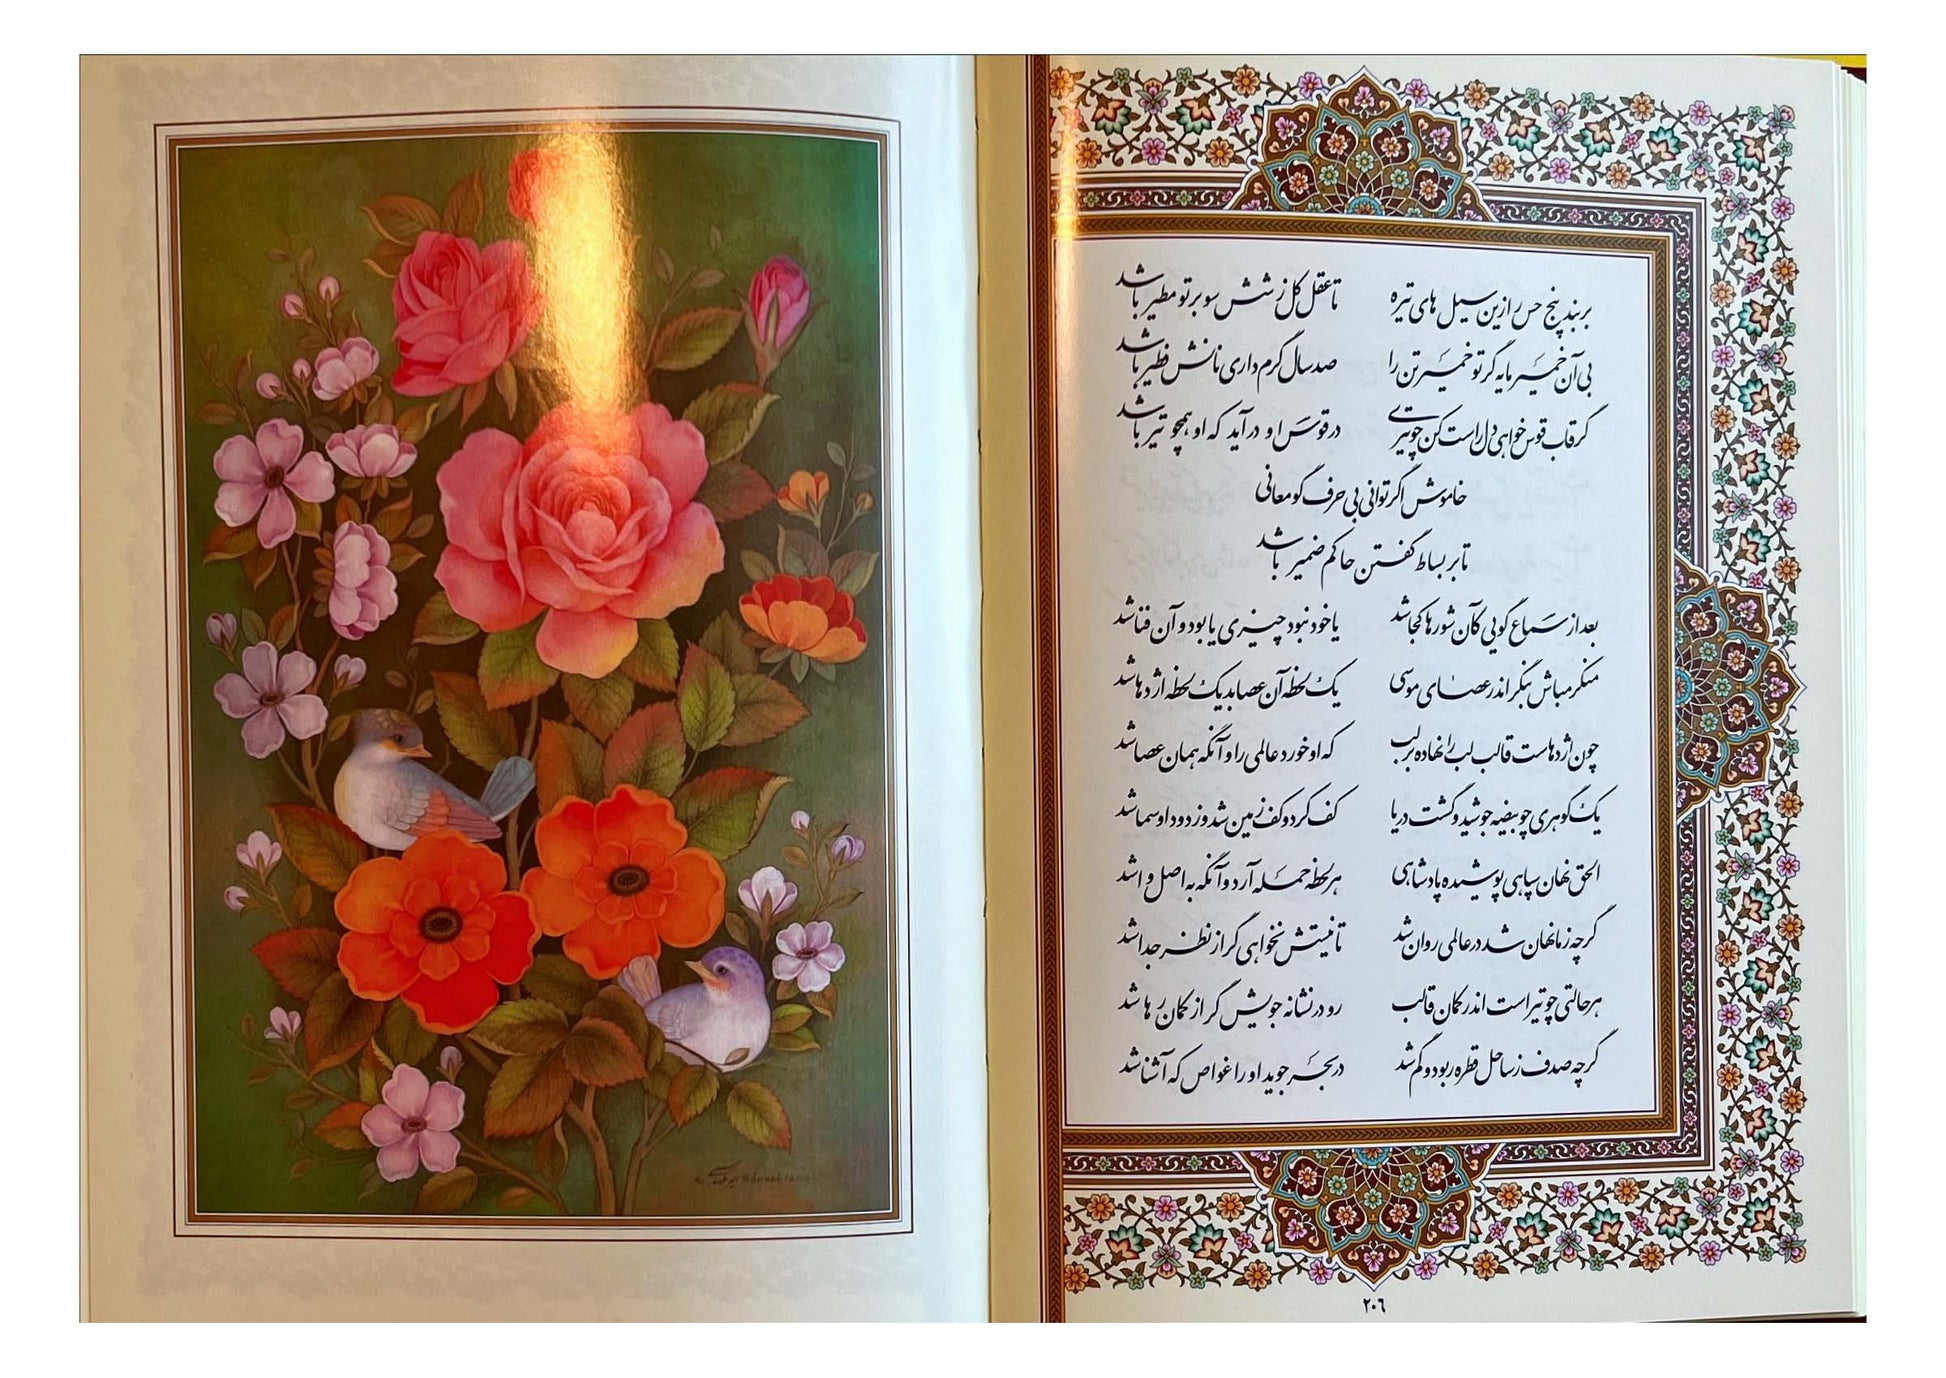 بربند پنج حس را زین سیل های تیره تا عقل کل ز شش سو بر تو مطیر باشد
بی آن خمیر مایه گر تو خمیر تن را صد سال گرم داری نانش فطیر باشد
گر قاب قوس خواهی دل راست کن چو تیری در قوس او درآید کو همچو تیر باشد
خاموش اگر توانی بی حرف گو معانی
تا بر بساط گفتن حاکم ضمیر باشد
بعد از سماع گویی کآن شورها کجا شد یا خود نبود چیزی یا بود و آن فنا شد
منکر مباش بنگر اندر عصای موسی یک لحظه آن عصا بد یک لحظه اژدها شد
چون اژدهاست قالب لب را نهاده بر لب که او خورد عالمی را و آنگه همان عصا شد
یک گوهری چو بیضه جوشید و گشت دریا کف کرد و کف زمین شد وز دود او سما شد
الحق نهان سپاهی پوشیده پادشاهی هر لحظه حمله آرد و آنگه به اصل وا شد
گرچه ز ما نهان شد در عالمی روان شد تا نیستش نخواهی گر از نظر جدا شد
هر حالتی چو تیر است اندر کمان قالب رو در نشانه جویش گر از کمان رها شد
گرچه صدف ز ساحل قطره ربود و گم شد در بحر جوید او را غواص که آشنا شد
۲۰۶